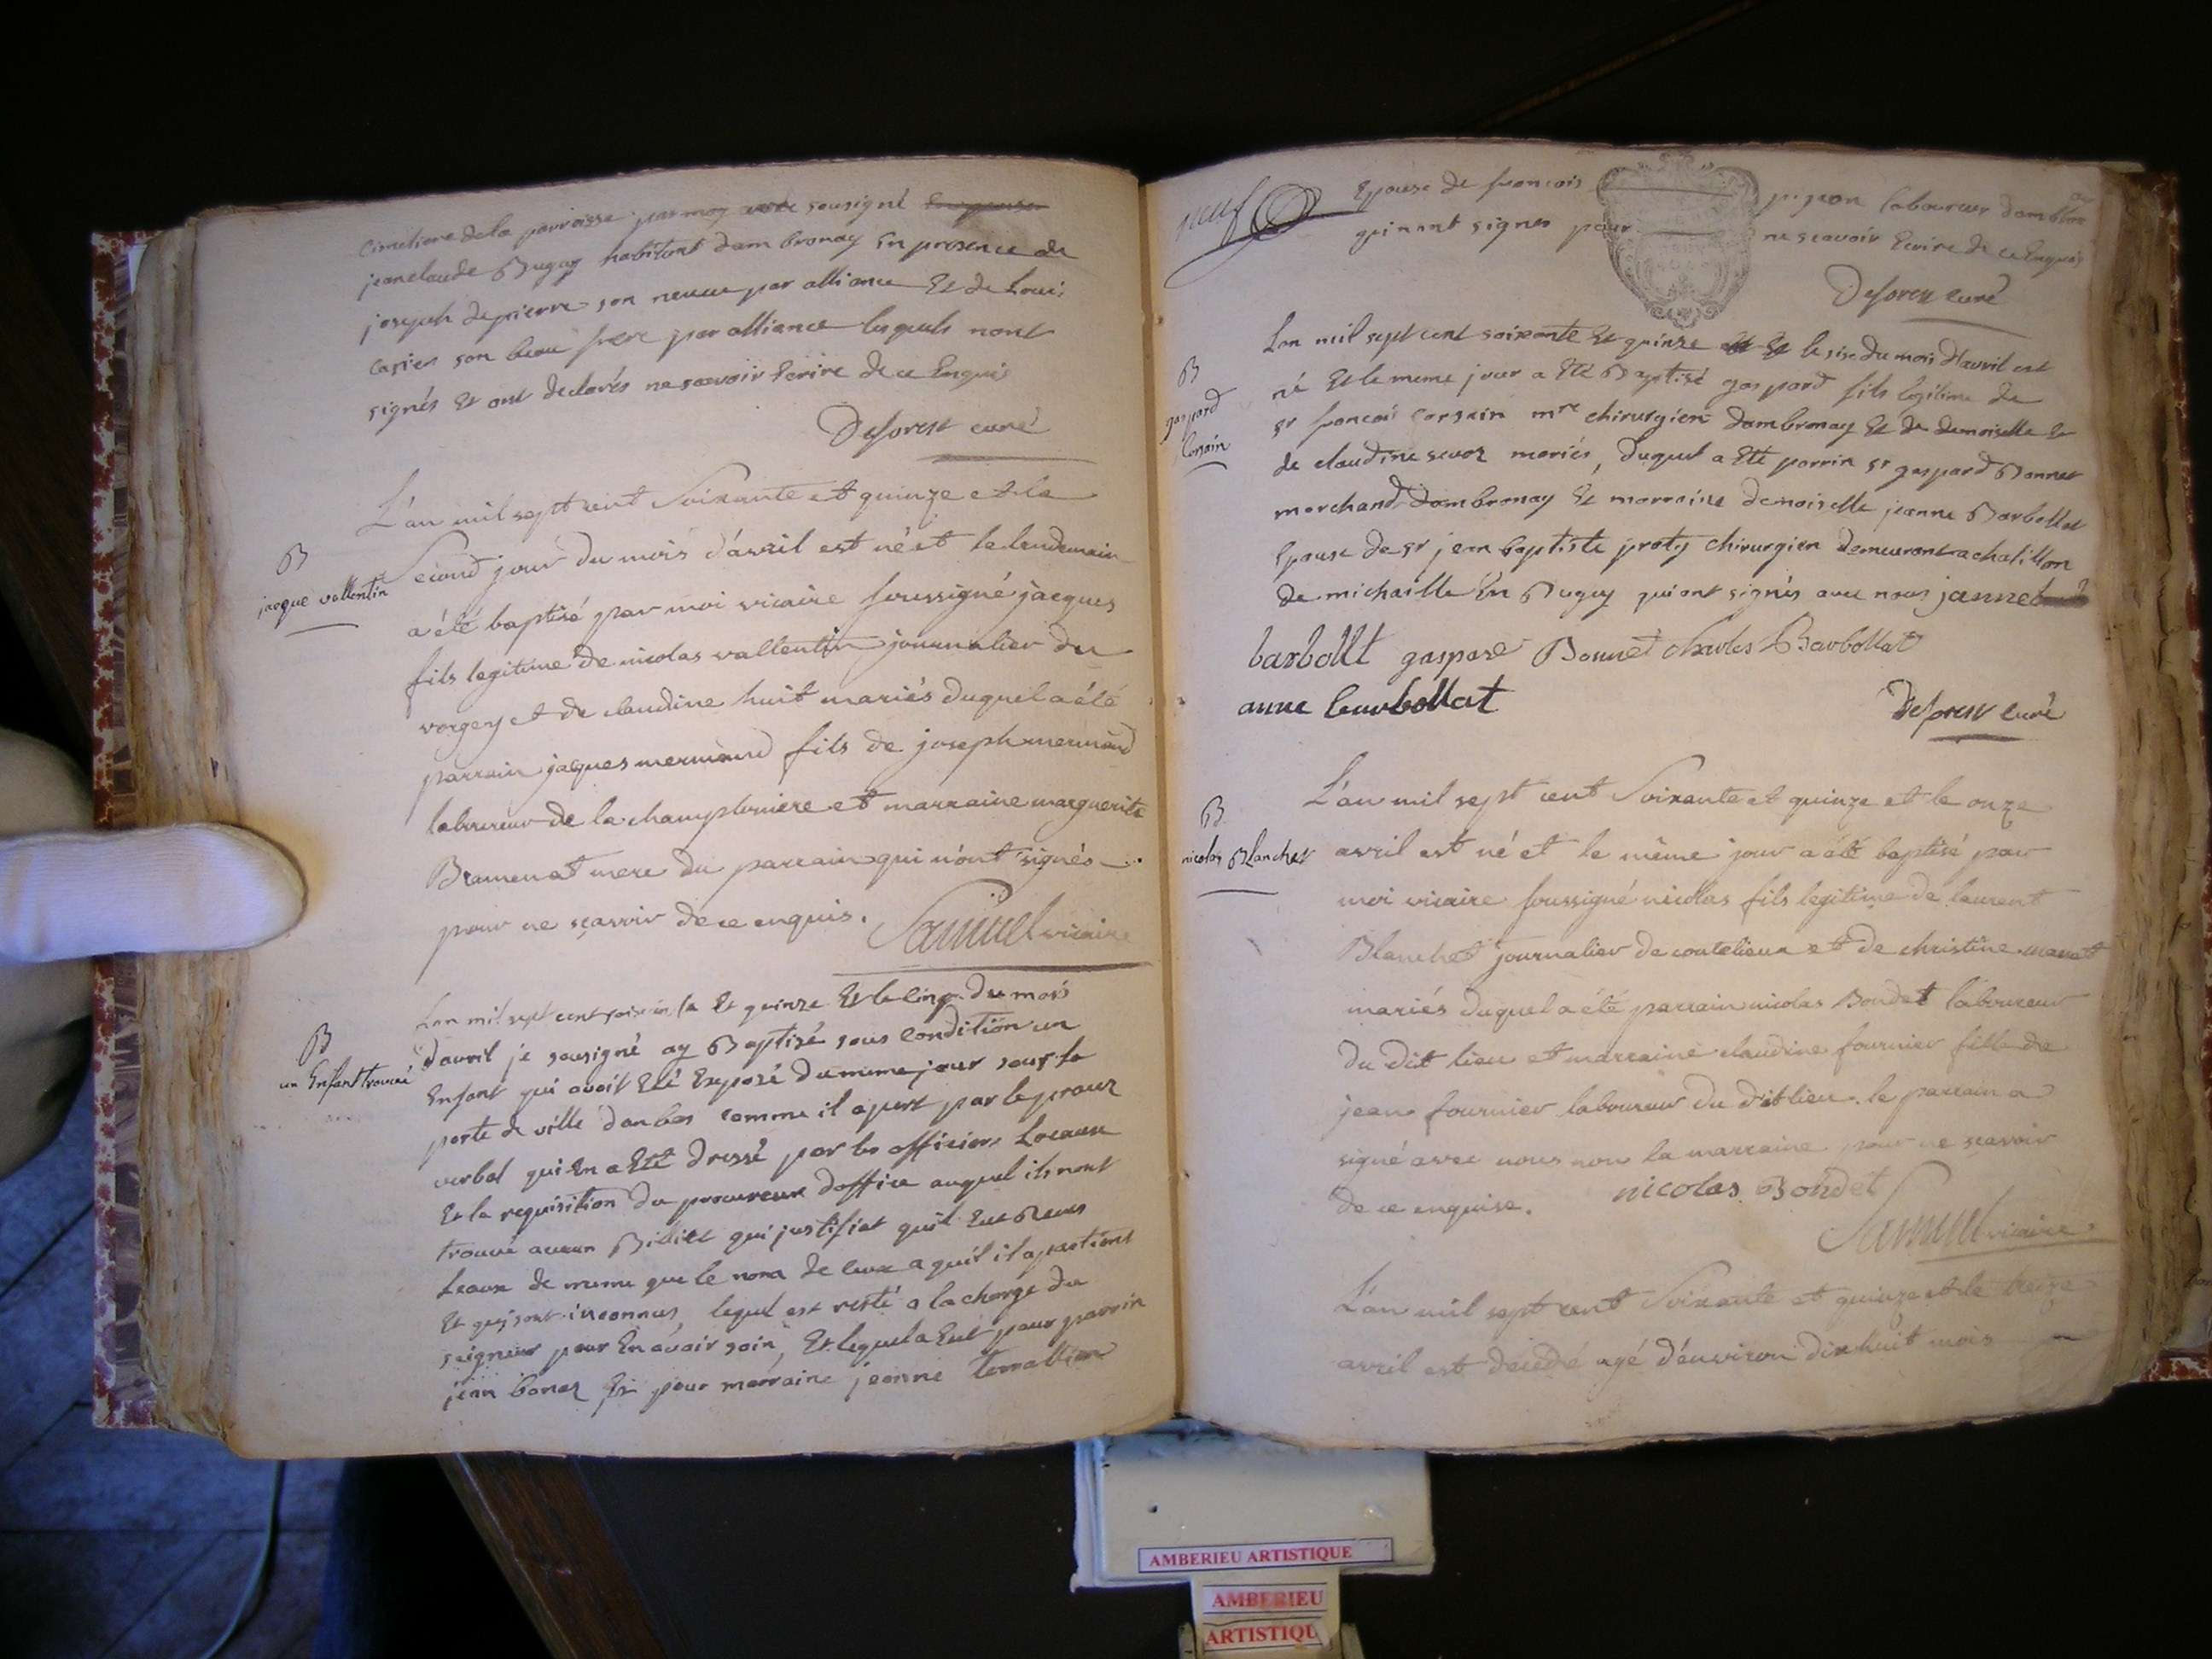 cimetiere de la parroisse par moy curé sousigné
jeanclaude Bugey habitant dambronay En presence de
joseph depierre son neveu par alliance Et de Loui
casier son beau frere par alliance lesquels nont
signés Et ont declarés ne scavoir Ecrire de ce Enquis
Deforest curé
L'an mil sept cent Soixante et quinze et le
B
Second jour du mois d'avril est né et le lendemain
jacque vallentin
a été baptisé par moi vicaire soussigné jacques
fils legitime de nicolas vallentin journalier du
vorgey et de claudine huit mariés duquel a été
parrain jacques mermand fils de joseph mermand
laboureur de la champloniere et marraine marguerite
Bramenat mere du parrain qui n'ont signés
pour ne sçavoir de ce enquis. Samuel vicaire
Lan mil sept cent soixante Et quinze Et le cinq du mois
B
un Enfant trouvé
davril je sousigné ay Baptisé sous condition un
Enfant qui avoit Eté Exposé du meme jour sous la
porte de ville danbas comme il apert par le proces
verbal qui En a Eté dressé par les officiers Locaux
Et la requisition du procureur doffice auquel ils nont
trouvé aucun Billiet qui justifiat quil Eut Reçus
Leaux de meme que le nom de ceux a quil il apartient
Et qui sont inconnus, lequel est resté a la charge du
seigneur pour En avoir soin, Et lequel a Eut pour parrin
jean bonaz Et pour marraine jeanne tenallion
neuf
Epouse de francois pigeon laboureur dambronay
qui nont signes pour ne scavoir Ecrire de ce Enquis
Deforest curé
Lan mil sept cent soixante Et quinze Et le six du mois d'avril est
B
gaspard
Corsain
né Et le meme jour a Eté Baptisé gaspard fils legitime de
sr francois corsain mre chirurgien dambronay Et de demoiselle
de claudine sevoz mariés, duquel a Eté parrin sr gaspard Bonnet
marchand dambronay Et marraine demoiselle jeanne Barbollat
Epouse de sr jean baptiste proty chirurgien demeurant a chatillon
de michaille En Bugey qui ont signés avec nous jannet
barbollt gaspard Bonnet charles Barbollat
anne barbollat
Deforest curé
L'an mil sept cent Soixante et quinze et le onze
B
nicolas Blanchet
avril est né et le même jour a été baptisé par
moi vicaire soussigné nicolas fils legitime de laurent
Blanchet journalier de coutelieux et de christine manet
mariés duquel a été parrain nicolas Bondet laboureur
du dit lieu et marraine claudine fournier fille de
jean fournier laboureur du dit lieu. le parrain a
signé avec nous non la marraine pour ne sçavoir
de ce enquise. nicolas Bondet
Samuel vicaire
L'an mil sept cent Soixante et quinze et le treize
avril est décédé agé d'environ dix huit mois
AMBERIEU ARTISTIQUE
AMBERIEU
ARTISTIQU